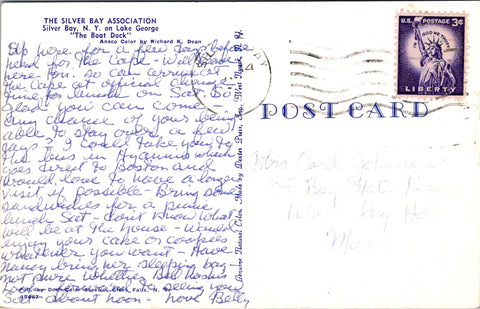 THE SILVER BAY ASSOCIATION
Silver Bay, N. Y. on Lake George
"The Boat Dock"
Ansco Color by Richard K. Dean
Up here for a few days before
head for the Cape - Will leave
here so can arrive at
the Cape at official opening
time for lunch on Sat. So
glad you can come -
any chance of your being
able to stay over a few
days - I could take you to
the bus in Hyannis which
goes direct to Boston and
would love to have a longer
visit if possible - Bring some
sandwiches for a picnic
lunch Sat - don't know what
will be at the house - Would
enjoy your cake or cookies
whatever you want - Have
Nancy bring her sleeping bag -
not sure whether Bob
Look forward to seeing you
Sat - about noon - Love Betty
Genuine Natural Color Made by Dexter Press, Inc., West Nyack, N. Y.
POST CARD
U.S. POSTAGE 3¢
IN GOD WE TRUST
LIBERTY
Mrs Carl Johnson
Bay State Road
Mass